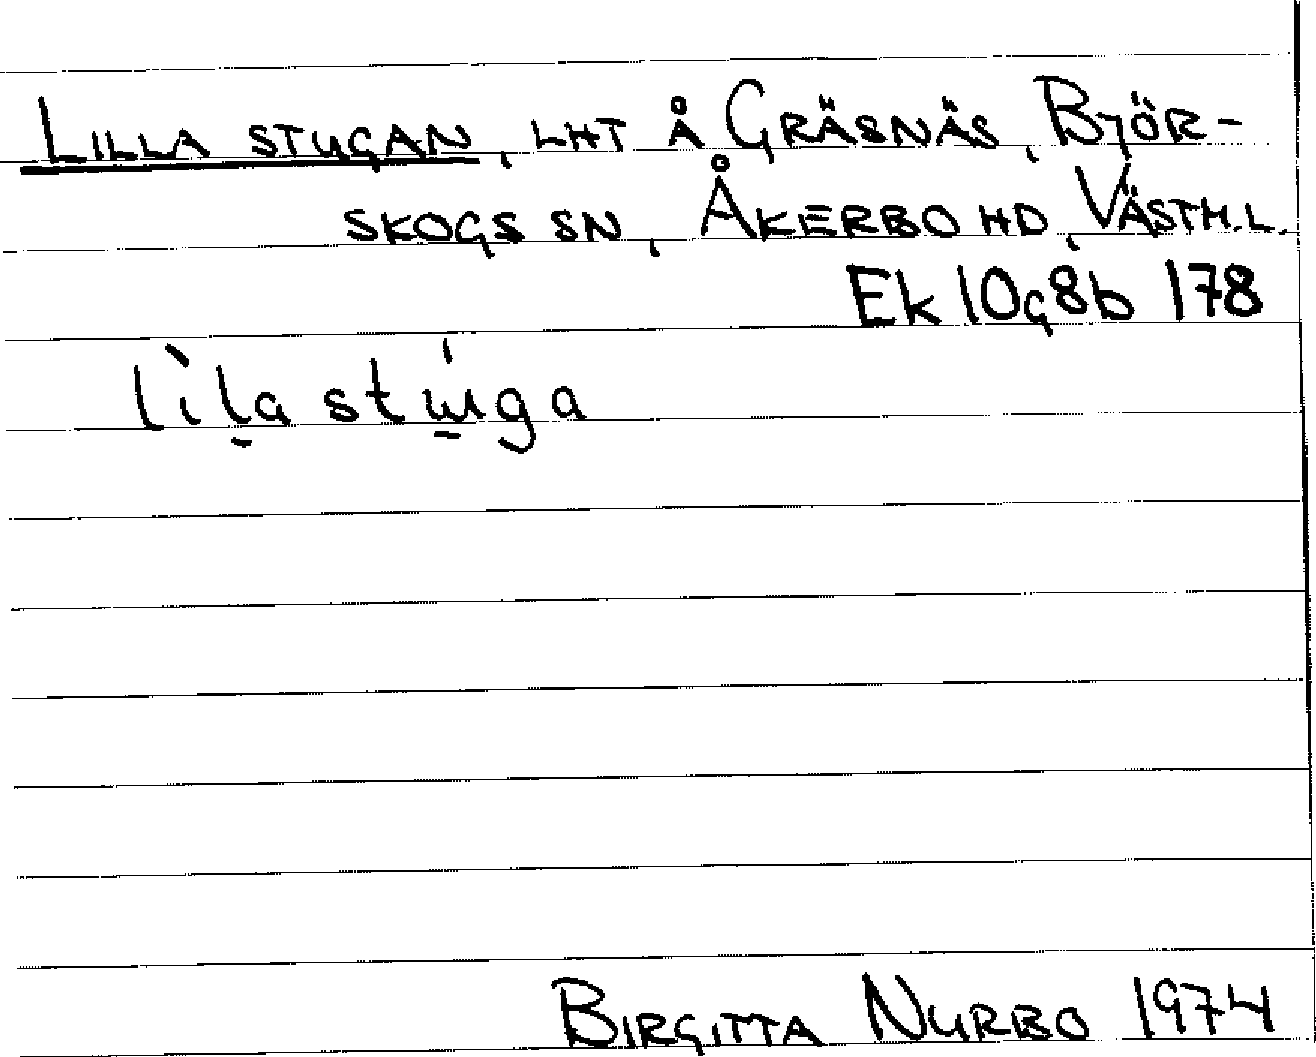 LILLA STUGAN, LHT Å GRÄSNÄS, BJÖR-
SKOGS SN, ÅKERBO HD, VÄSTM.L.
Ek 10g8b 178
lìl̠a stɯ̠́ga
BIRGITTA NURBO 1974